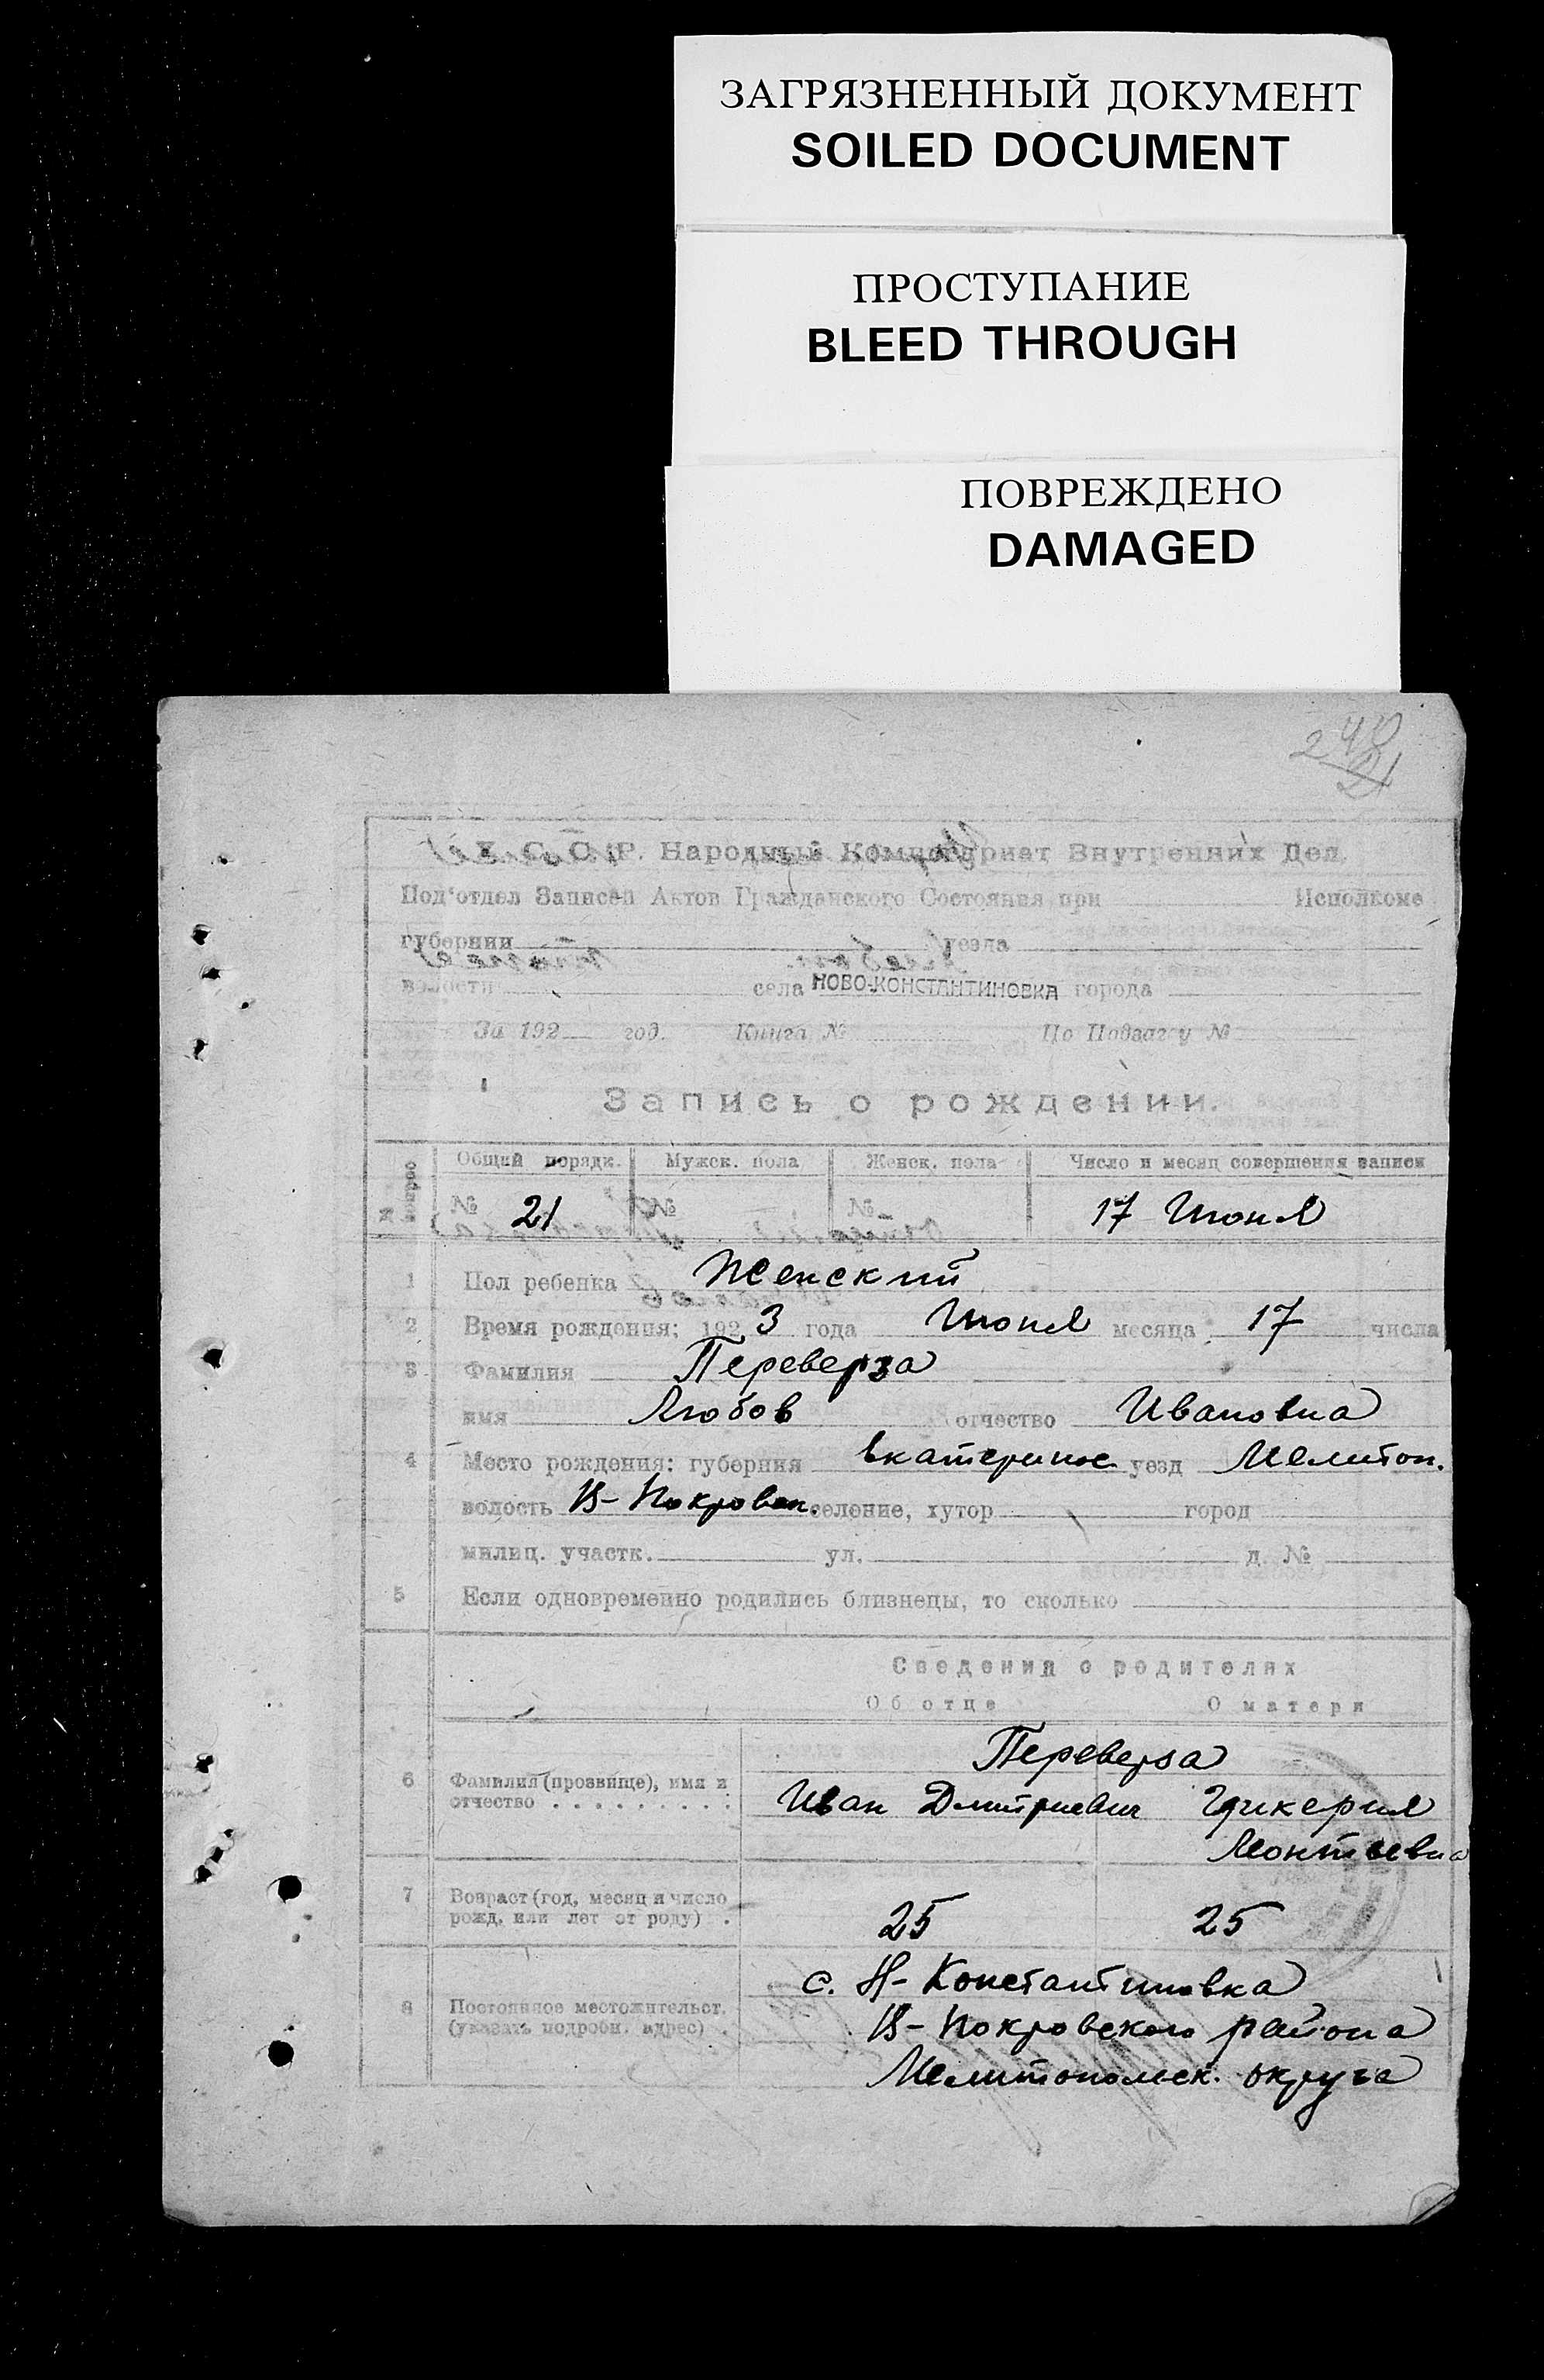 ЗАГРЯЗНЕННЫЙ ДОКУМЕНТ
SOILED DOCUMENT
ПРОСТУПАНИЕ
BLEED THROUGH
ПОВРЕЖДЕНО
DAMAGED
240
21
У. С. С. Р. Народный Комиссариат Внутренних Дел.
Под'отдел Записей Актов Гражданского Состояния при Исполкоме
губернии уезда
волости села НОВО-КОНСТАНТИНОВКА города
За 192 год. Книга № По Подзагсу №
Запись о рождении.
Общий порядк. Мужск. пола Женск. пола Число и месяц совершения записи
№ 21 № № 17 Июня
1 Пол ребенка Женский
2 Время рождения: 1923 года Июня месяца 17 числа
3 Фамилия Переверза
имя Любов отчество Ивановна
4 Место рождения: губерния Екатеринос уезд Мелитоп.
волость В-Покровск. селение, хутор город
милиц. участк. ул. д. №
5 Если одновременно родились близнецы, то сколько
Сведения о родителях
Об отце О матери
Переверза
6 Фамилия (прозвище), имя и отчество Иван Дмитриевич Гликерия
Леонтьевна
7 Возраст (год, месяц и число
рожд. или лет от роду) . 25 25
с. Н-Константиновка
8 Постоянное местожительст.
(указать подробн. адрес) . В-Покровского района
Мелитопольск. округа